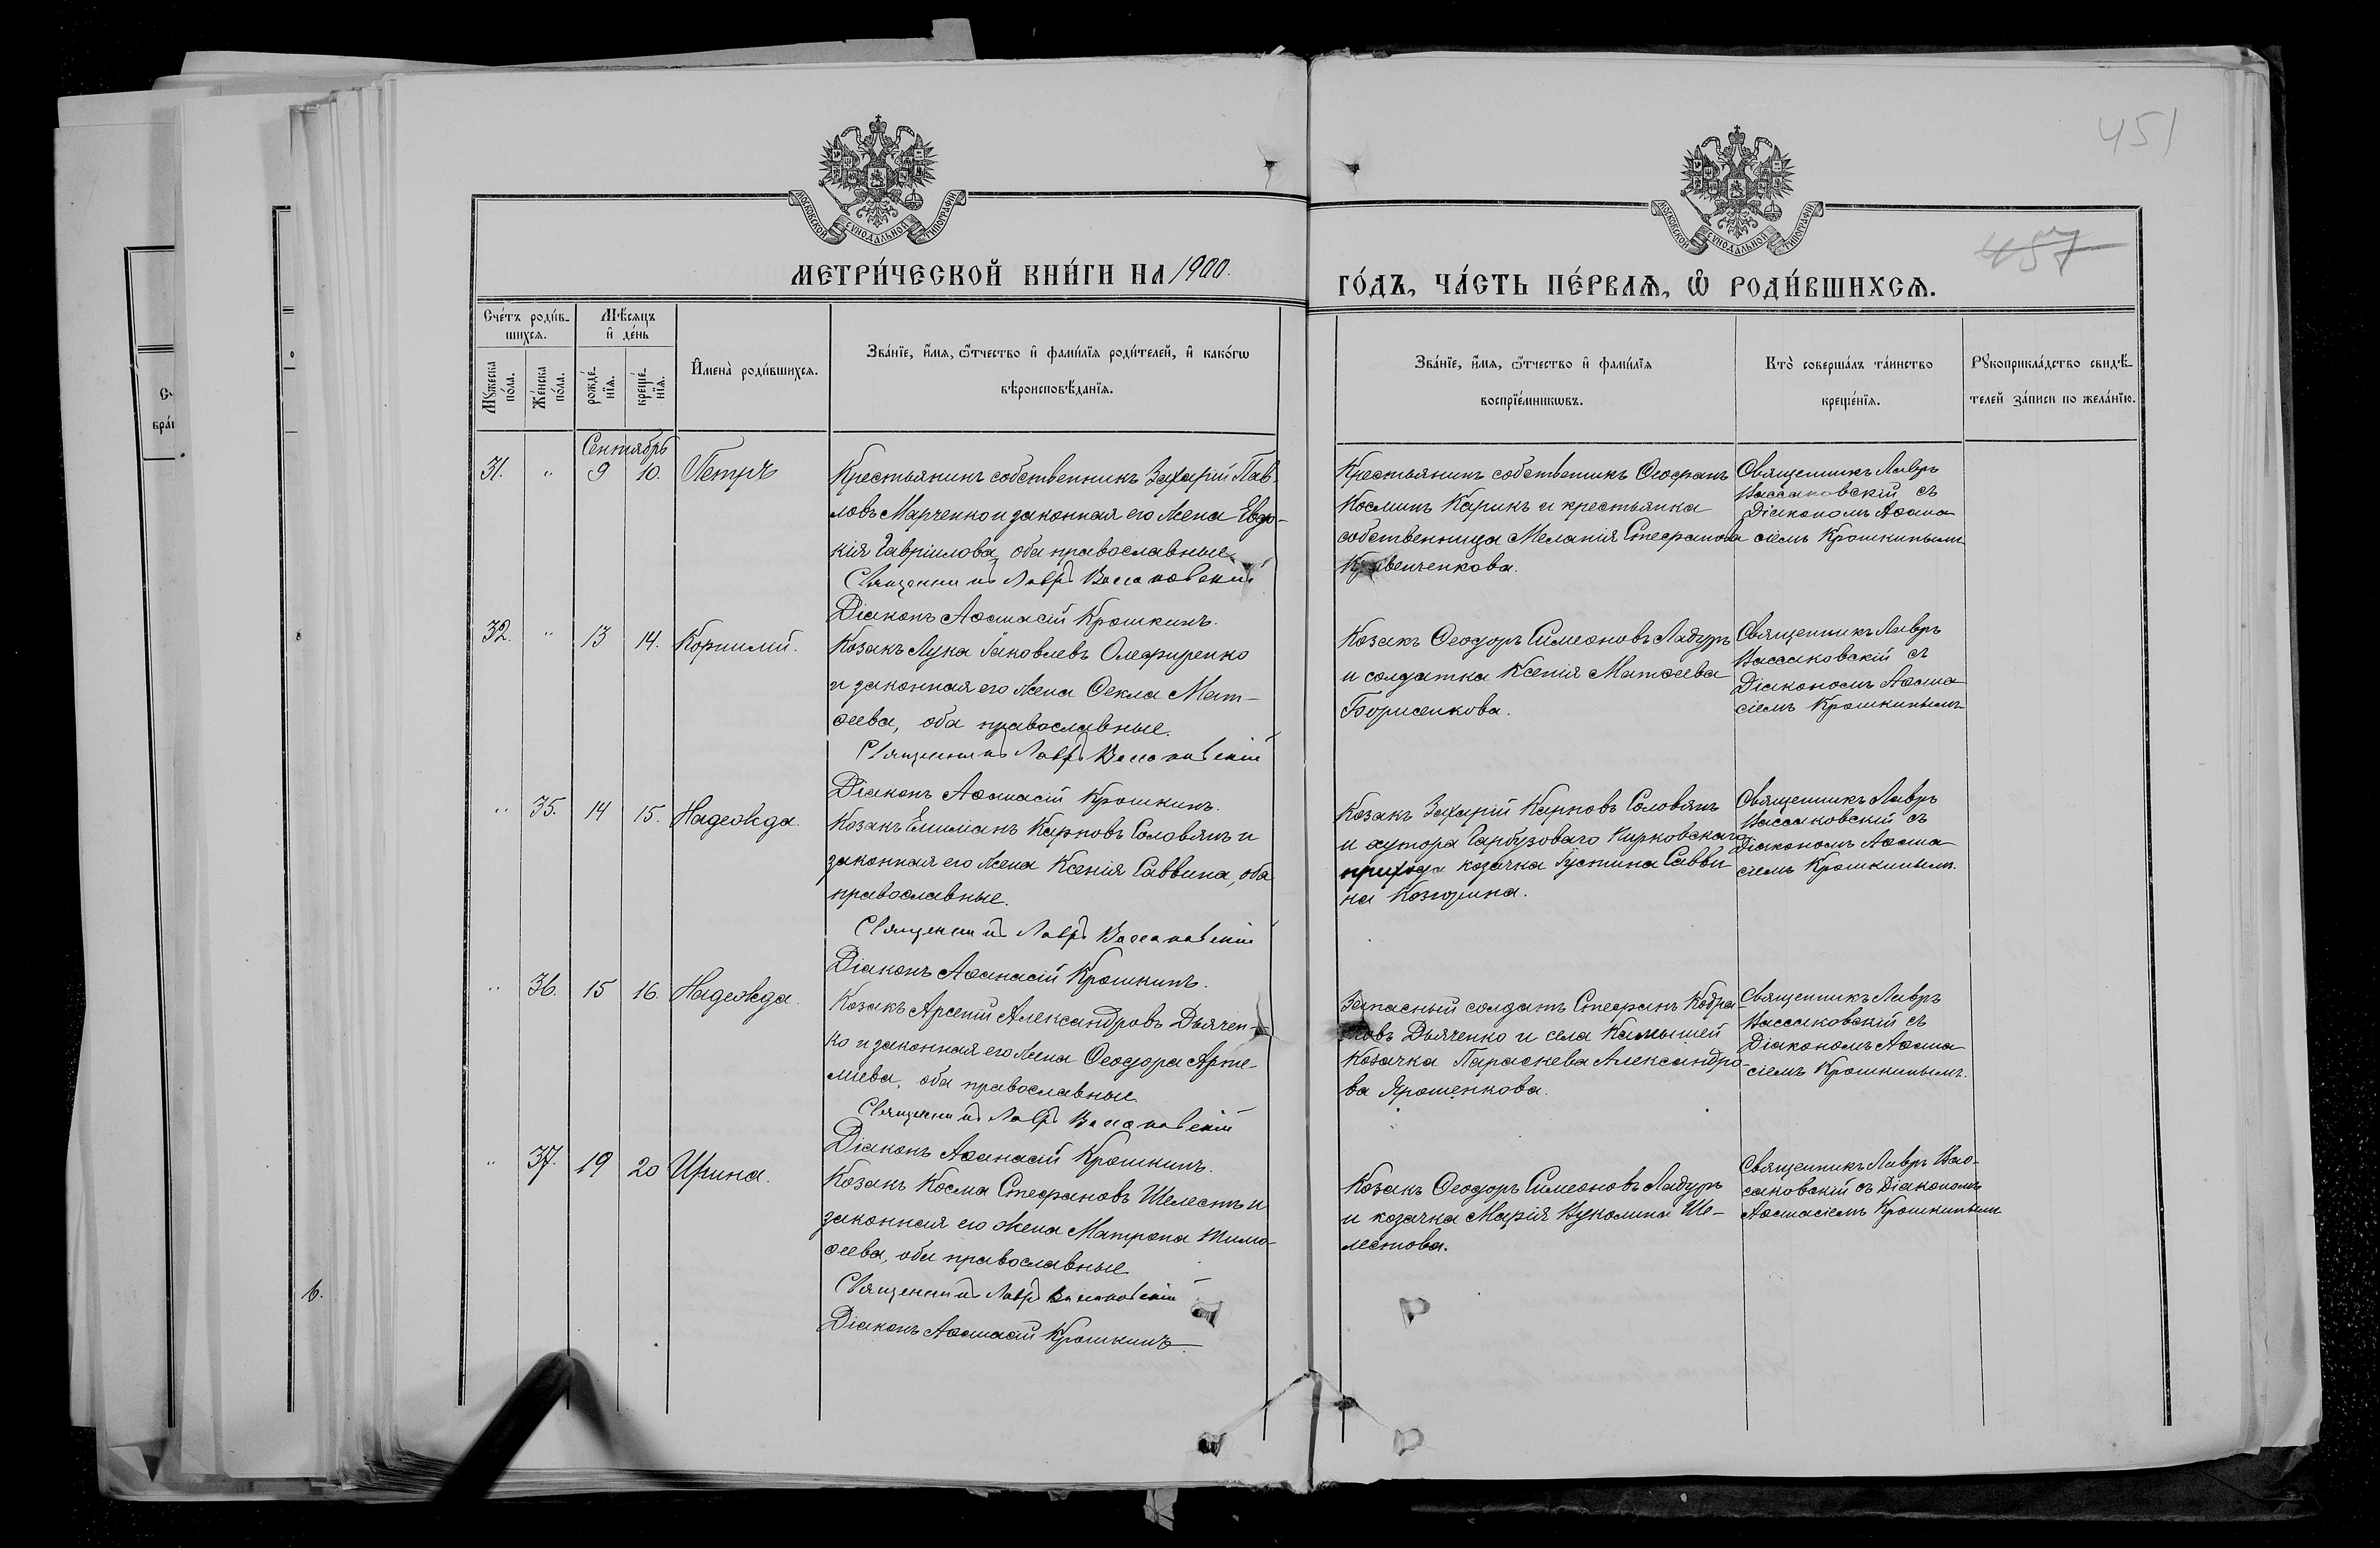 451
457
МОСКОВСКОЙ СУНОДАЛЬНОЙ ТИПОГРАФІИ
МОСКОВСКОЙ СУНОДАЛЬНОЙ ТИПОГРАФІИ
МЕТРИ́ЧЕСКОЙ КНИ́ГИ НА 1900.
ГО́ДЪ, ЧА́СТЬ ПЕ́РВАѦ, Ѡ҆ РОДИ́ВШИХСѦ.
Сче́тъ роди́в-
шихсѧ.
Мѣ́сѧцъ
и҆ де́нь
Мꙋжеска по́ла.
Же́нска по́ла.
рожде́-
нїѧ.
креще́-
нїѧ.
И҆мена̀ роди́вшихсѧ.
Зва́нїе, и҆́мѧ, ѻ҆́тчество и҆ фами́лїѧ роди́телей, и҆ како́гѡ
вѣроисповѣ́данїѧ.
Зва́нїе, и҆́мѧ, ѻ҆́тчество и҆ фами́лїѧ
воспрїе́мникѡвъ.
Кто̀ соверша́лъ та́инство
креще́нїѧ.
Рꙋкоприкла́дство свидѣ́-
телей за́писи по жела́нїю.
Сентябрь
31. " 9 10. Петръ
Крестьянинъ собственникъ Захарій Пав-
ловъ Марченко и законная его жена Евдо-
кія Гавріилова, оба православные.
Священникъ Лавръ Вассаковскій
Діаконъ Аѳанасій Крошкинъ.
Крестьянинъ собственикъ Ѳеофанъ
Косминъ Карикъ и крестьянка
собственница Меланія Стефанова
Кравенченкова.
Священникъ Лавръ
Вассаковскій съ
Діакономъ Аѳана
сіемъ Крошкинымъ
32. " 13 14. Корнилій.
Козакъ Лука Іаковлевъ Олефиренко
и законная его жена Ѳекла Мат-
ѳеева, оба православные.
Священникъ Лавръ Вассаковскій
Діаконъ Аѳанасій Крошкинъ.
Козакъ Ѳеодоръ Симеоновъ Ладуръ
и солдатка Ксенія Матѳеева
Борисенкова.
Священникъ Лавръ
Вассаковскій съ
Діакономъ Аѳана
сіемъ Крошкинымъ
" 35. 14 15. Надежда.
Козакъ Емиліанъ Карповъ Соловянъ и
законная его жена Ксенія Саввина, оба
православные.
Священникъ Лавръ Вассаковскій
Діаконъ Аѳанасій Крошкинъ.
Козакъ Захарій Карповъ Соловянъ
и хутора Гарбузоваго
прихода козачка Іустина Савви-
на
Священникъ Лавръ
Вассаковскій съ
Діакономъ Аѳана
сіемъ Крошкинымъ.
" 36. 15 16. Надежда.
Козакъ Арсеній Александровъ Дьячен-
ко и законная его жена Ѳеодора Арте-
міева, оба православные.
Священникъ Лавръ Вассаковскій
Діаконъ Аѳанасій Крошкинъ.
Запасный солдатъ Стефанъ Кодра-
товъ Дьяченко и села Камышей
козачка Параскева Александро-
ва Ярошенкова.
Священникъ Лавръ
Вассаковскій съ
Діакономъ Аѳана
сіемъ Крошкинымъ.
" 37. 19 20 Ирина.
Козакъ Косма Стефановъ Шелестъ и
законная его жена Матрона Тимо-
ѳеева, оба православные
Священникъ Лавръ Вассаковскій
Діаконъ Аѳанасій Крошкинъ
Козакъ Ѳеодоръ Симеоновъ Ладуръ
и козачка Марія Вуколина Ше-
лестова.
Священникъ Лавръ Вас-
саковскій съ Діакономъ
Аѳанасіемъ Крошкинымъ
6.